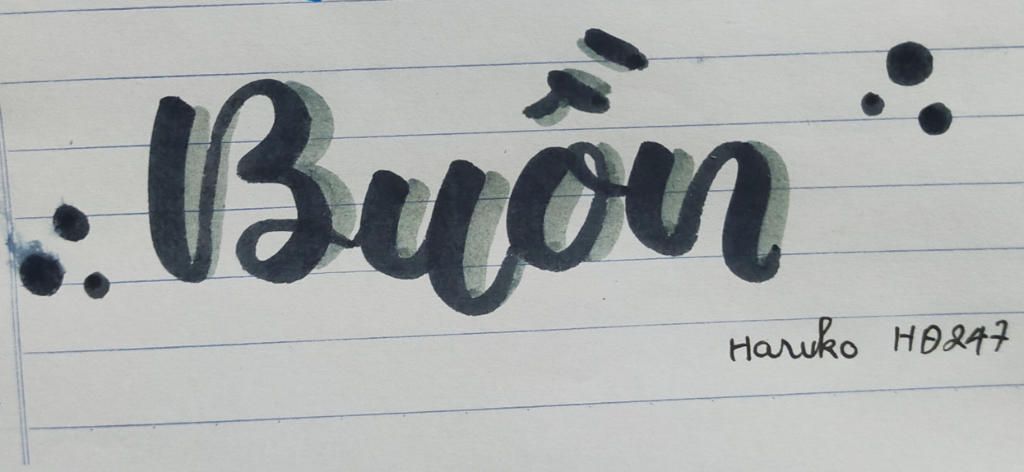 Buồn
Haruko H0247